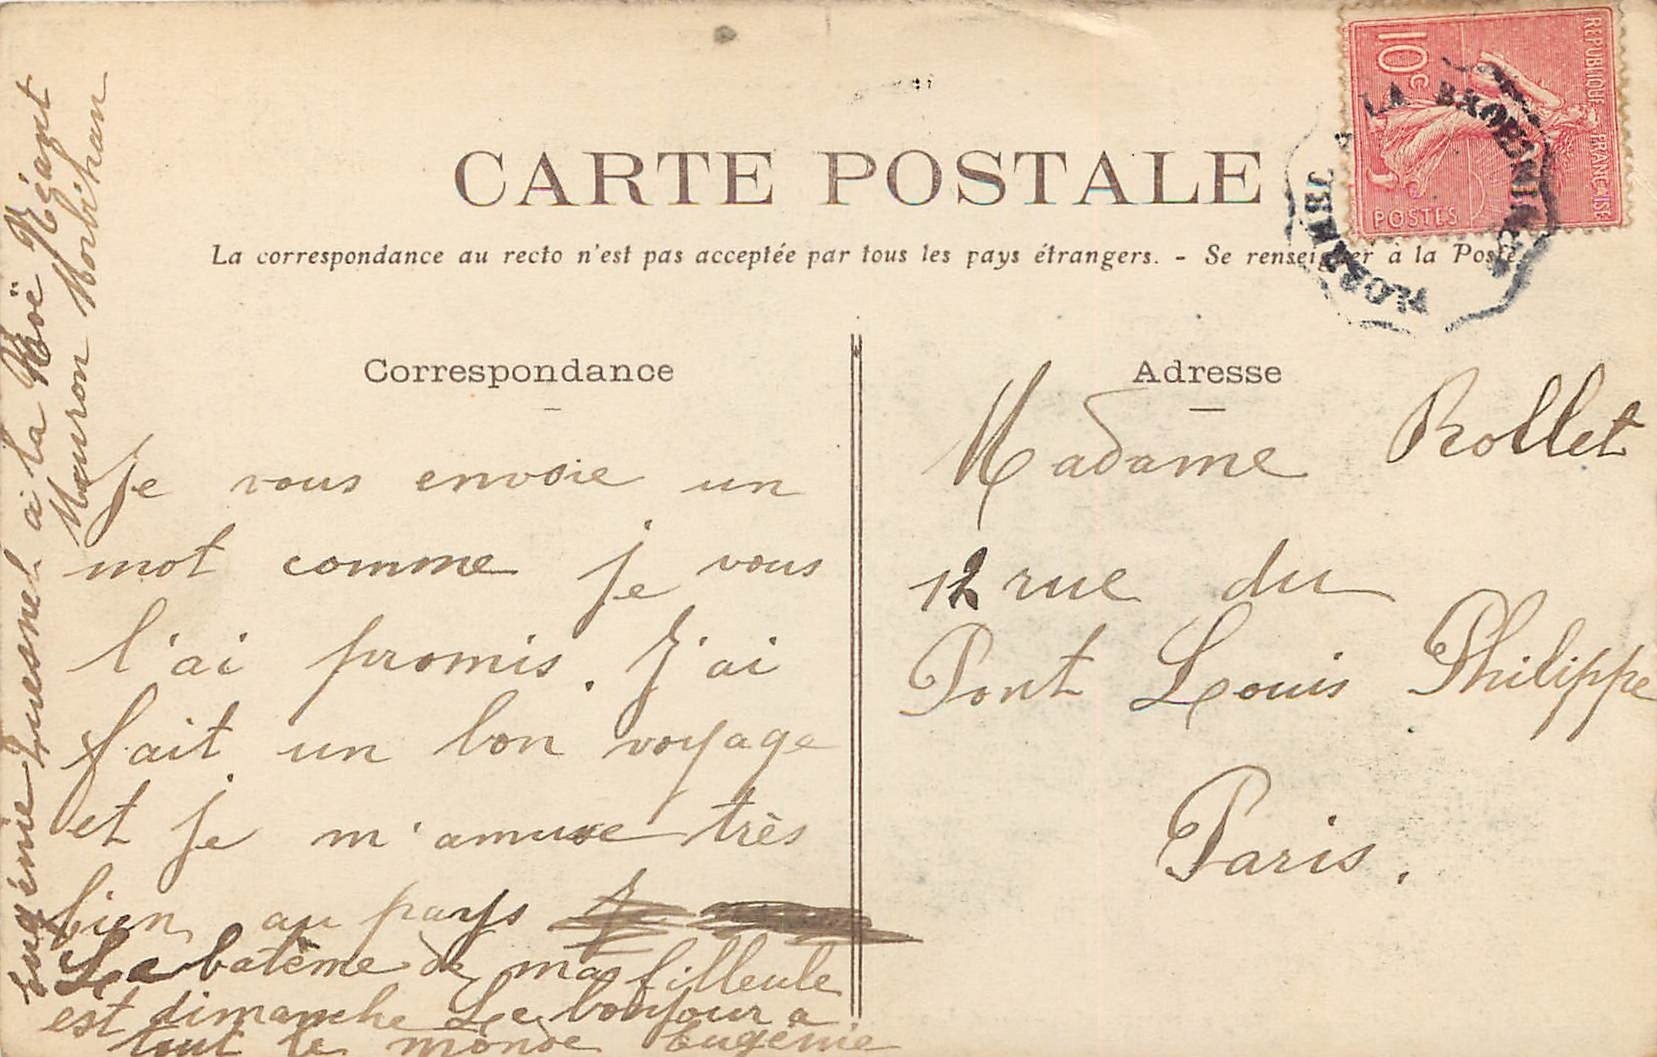 CARTE POSTALE
La correspondance au recto n'est pas acceptée par tous les pays étrangers. - Se renseigner à la Poste
REPUBLIQUE FRANÇAISE
10c
POSTES
PLOERMEL A LA BROHINIERE
Correspondance
Je vous envoie un
mot comme je vous
l'ai promis. J'ai
fait un bon voyage
et je m'amuse très
bien au pays
Le batême de ma filleule
est dimanche Le bonjour a
tout le monde Eugénie
Eugénie Quesnel à la Roë Néant
Mauron Morbihan
Adresse
Madame Rollet
12 rue du
Pont Louis Philippe
Paris.